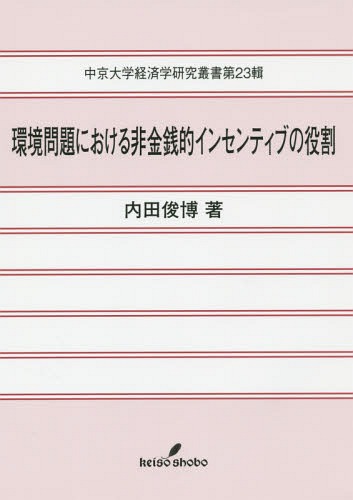 中京大学経済学研究叢書第23輯
環境問題における非金銭的インセンティブの役割
内田俊博 著
keiso shobo